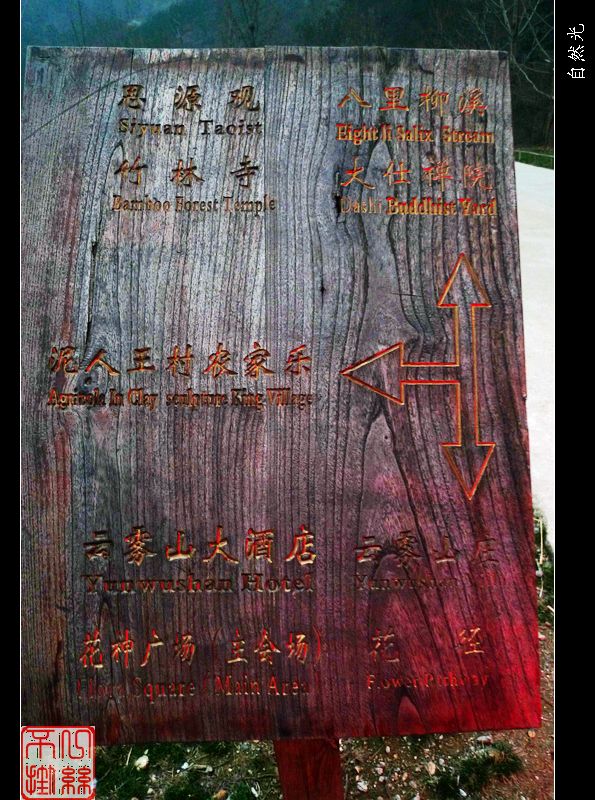 自然光
思源观 八里柳溪
Siyuan Taoist Eight li Salix Stream
竹林寺 大仕禅院
Bamboo Forest Temple Dashi Buddhist Yard
泥人王村农家乐
Agritaiale In Clay sculpture King Village
云雾山大酒店 云雾山庄
Yunwushan Hotel Yunwushan
花神广场(主会场) 花径
Flora Square / Main Area Flower Pathway